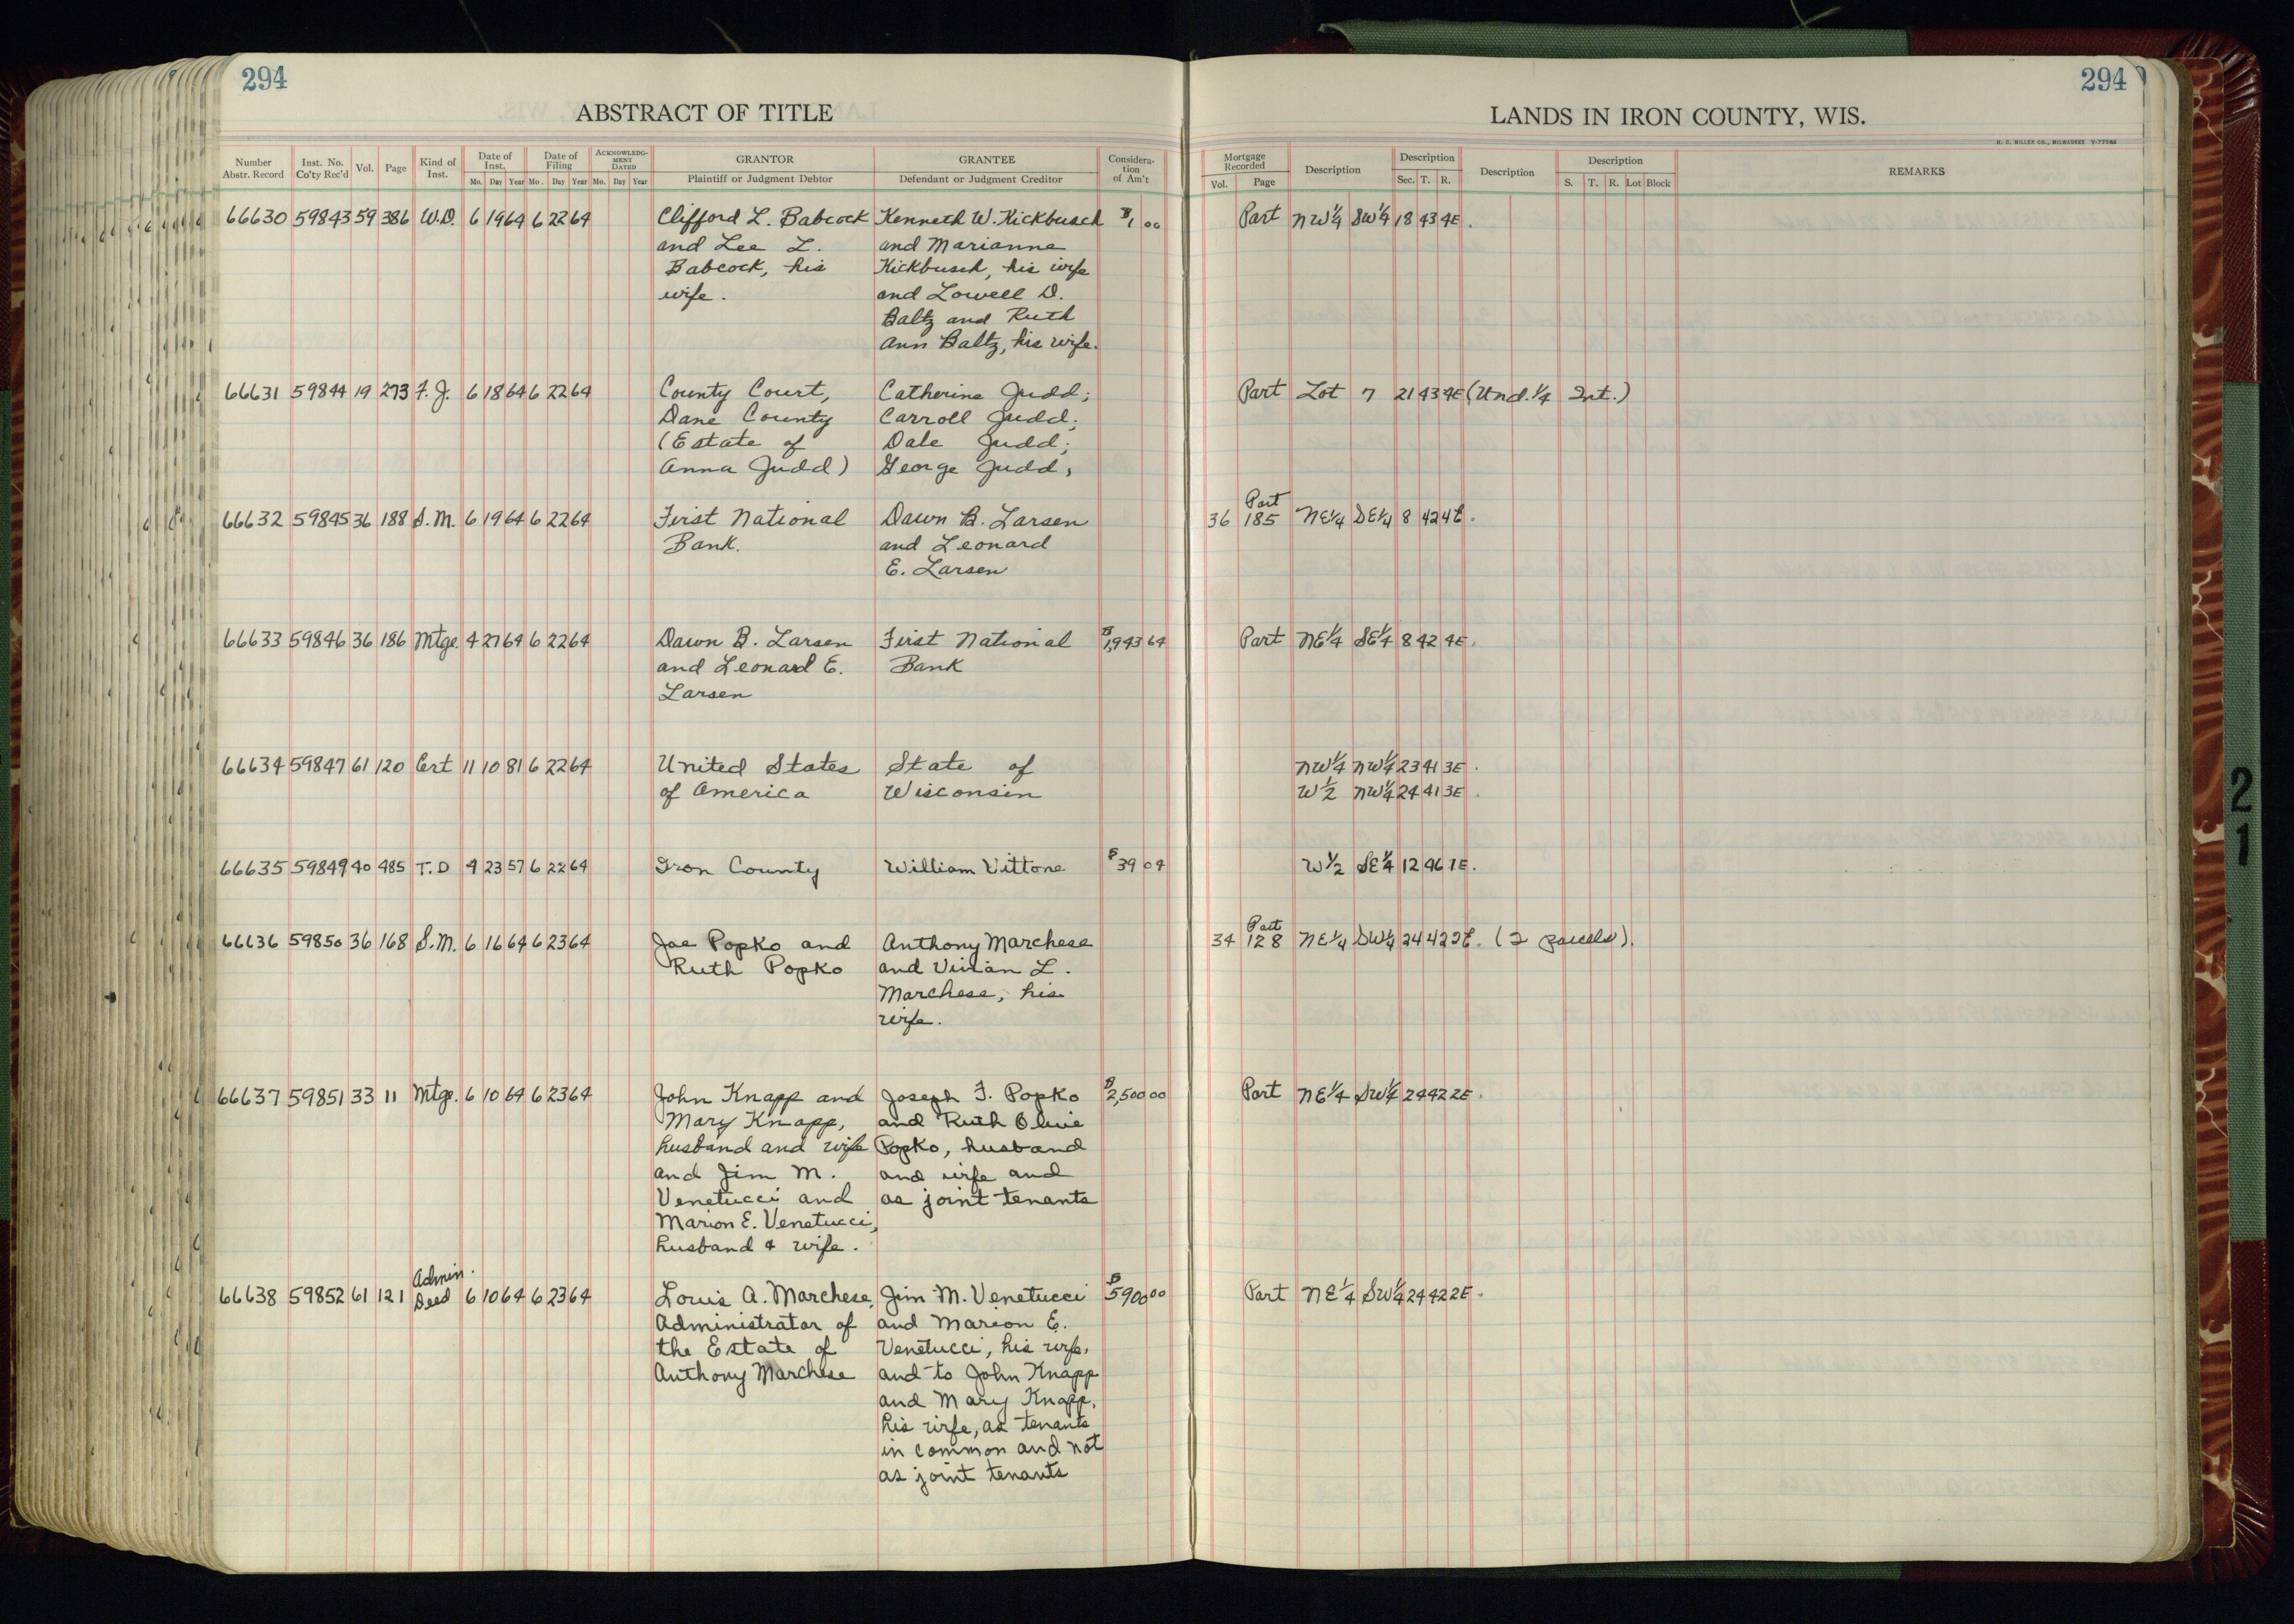 294
294
ABSTRACT OF TITLE
LANDS IN IRON COUNTY, WIS.
H. C. MILLER CO., MILWAUKEE
Number Abstr. Record Inst. No. Co'ty Rec'd Vol. Page Kind of Inst. Date of Inst. Mo. Day Year Date of Filing Mo. Day Year ACKNOWLEDG-MENT DATED Mo. Day Year GRANTOR Plaintiff or Judgment Debtor GRANTEE Defendant or Judgment Creditor Considera-tion of Am't
Mortgage Recorded Vol. Page Description Description Sec. T. R. Description Description S. T. R. Lot Block REMARKS
66630 59843 59 386 W.D. 6 19 64 6 22 64 Clifford L. Babcock Kenneth W. Kickbusch $1 00 Part NW¼ SW¼ 18 43 4E.
and Lee L. and Marianne
Babcock, his Kickbusch, his wife
wife. and Lowell D.
Baltz and Ruth
Ann Baltz, his wife.
66631 59844 19 273 F.J. 6 18 64 6 22 64 County Court, Catherine Judd; Part Lot 7 21 43 4E (Und. ¼ Int.)
Dane County Carroll Judd;
(Estate of Dale Judd;
Anna Judd) George Judd,
Part
66632 59845 36 188 S.M. 6 19 64 6 22 64 First National Dawn B. Larsen 36 185 NE¼ SE¼ 8 42 4E.
Bank. and Leonard
E. Larsen
66633 59846 36 186 Mtge. 4 27 64 6 22 64 Dawn B. Larsen First National $1,943 64 Part NE¼ SE¼ 8 42 4E.
and Leonard E. Bank
Larsen
66634 59847 61 120 Cert 11 10 81 6 22 64 United States State of NW¼ NW¼ 23 41 3E.
of America Wisconsin W½ NW¼ 24 41 3E.
66635 59849 40 485 T.D 4 23 57 6 22 64 Iron County William Vittone $39 04 W½ SE¼ 12 46 1E.
Part
66636 59850 36 168 S.M. 6 16 64 6 23 64 Joe Popko and Anthony Marchese 34 128 NE¼ SW¼ 24 42 2E. (2 parcels).
Ruth Popko and Vivian L.
Marchese, his
wife.
66637 59851 33 11 Mtge. 6 10 64 6 23 64 John Knapp and Joseph F. Popko $2,500 00 Part NE¼ SW¼ 24 42 2E.
Mary Knapp, and Ruth Olive
husband and wife Popko, husband
and Jim M. and wife and
Venetucci and as joint tenants
Marion E. Venetucci,
husband & wife.
Admin.
66638 59852 61 121 Deed 6 10 64 6 23 64 Louis A. Marchese, Jim M. Venetucci $5900 00 Part NE¼ SW¼ 24 42 2E.
Administrator of and Marion E.
the Estate of Venetucci, his wife,
Anthony Marchese and to John Knapp
and Mary Knapp,
his wife, as tenants
in common and not
as joint tenants
2
1